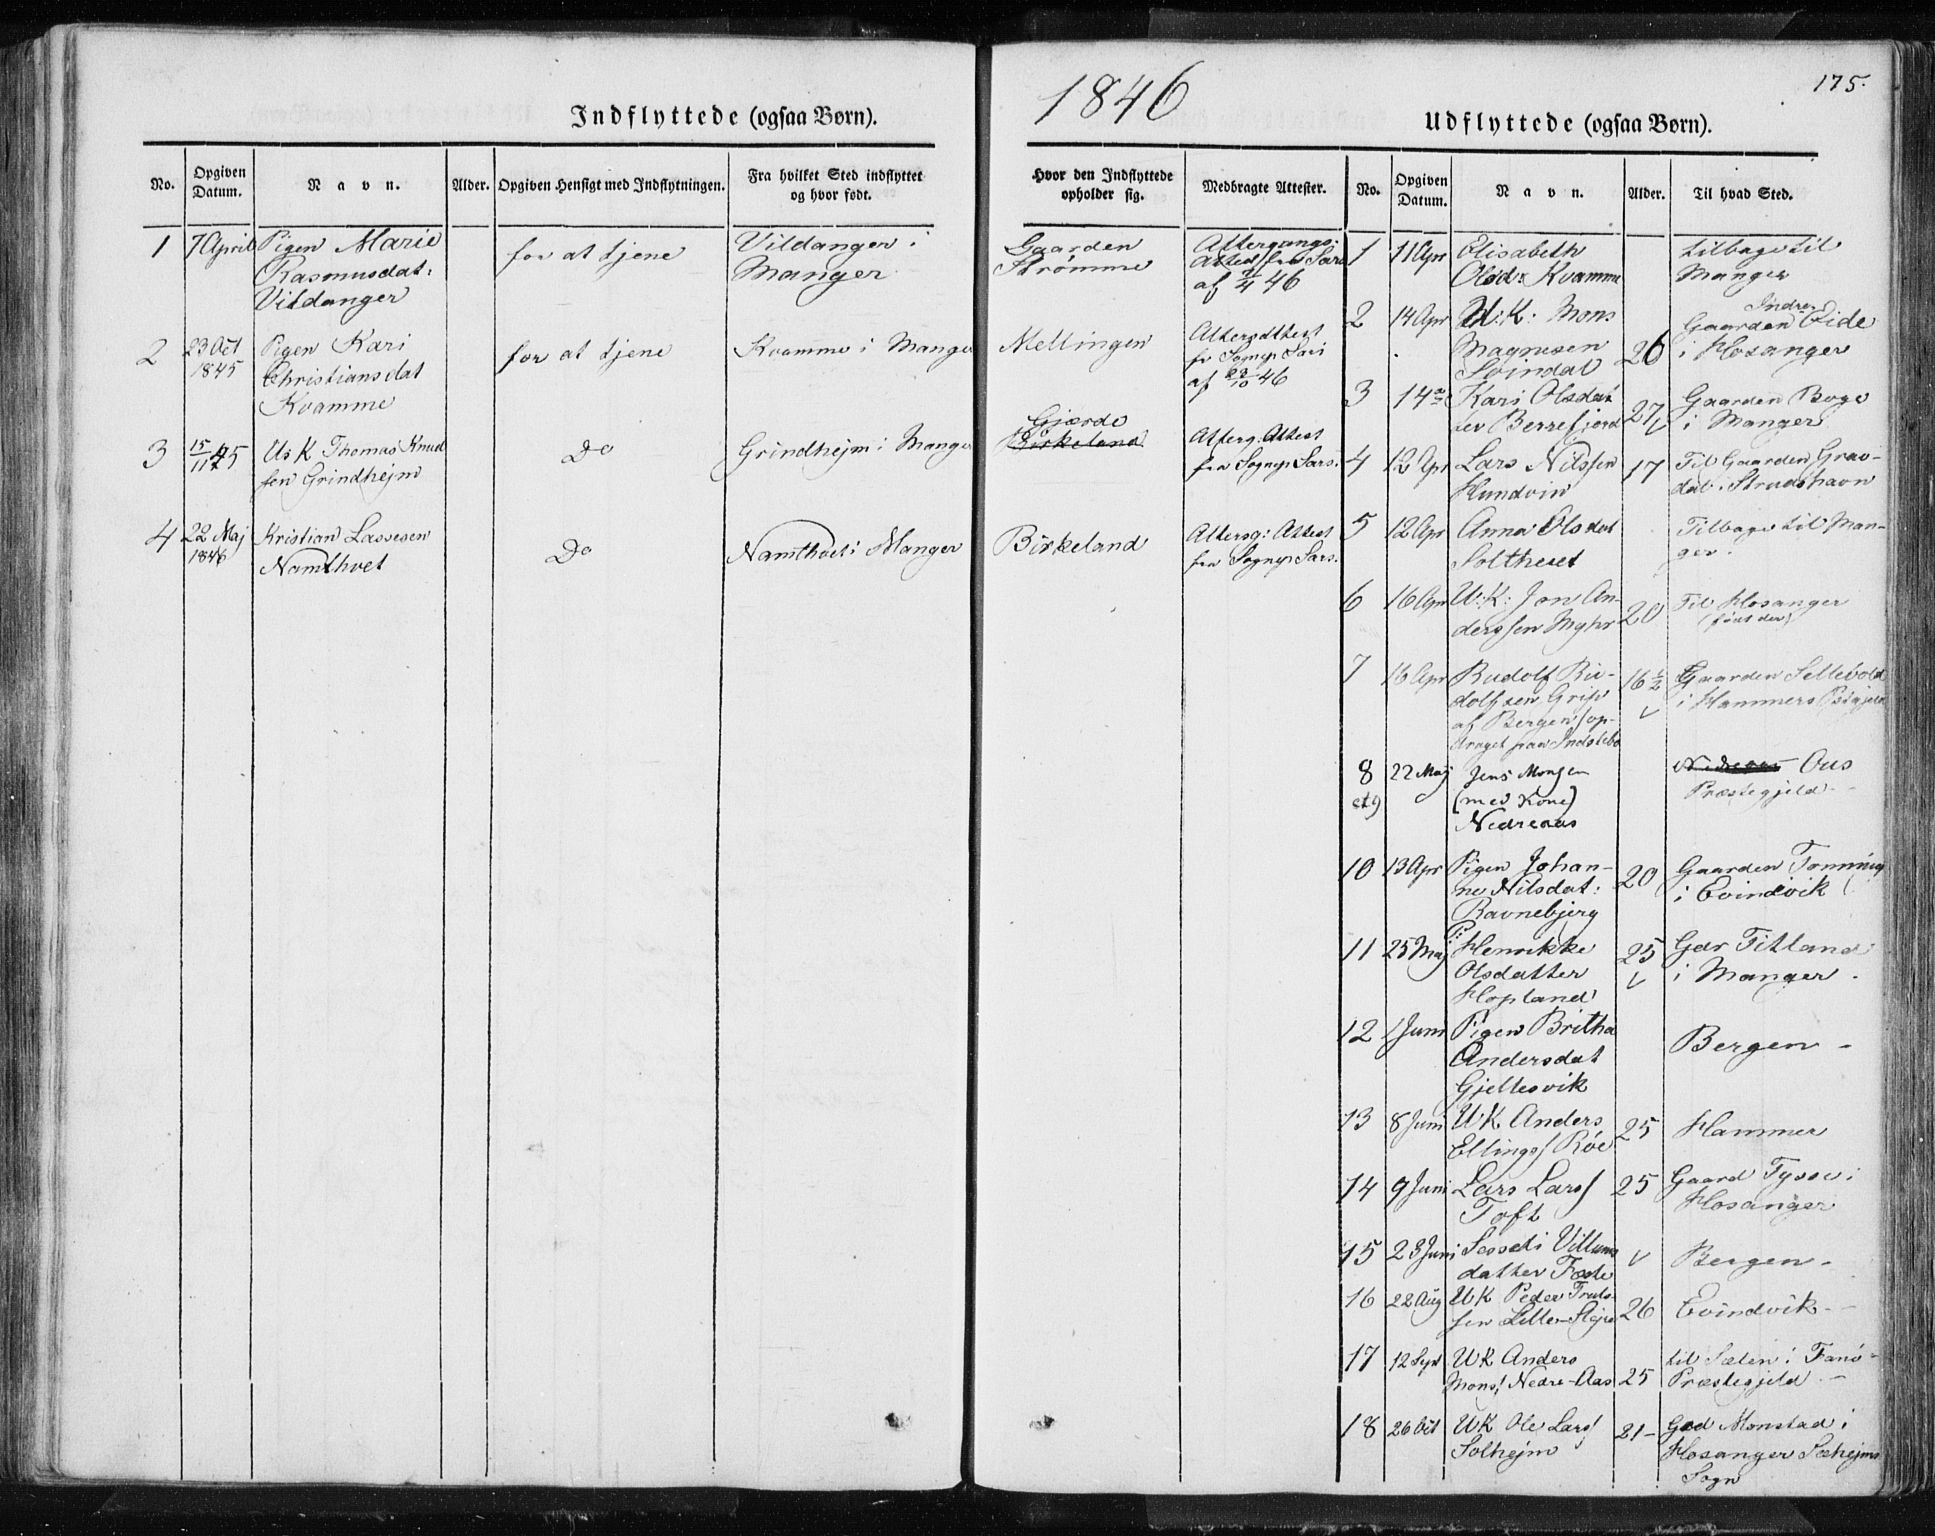 1846
175.
Indflyttede (ogsaa Børn).
Udflyttede (ogsaa Børn).
No. Opgiven Datum. Navn. Alder. Opgiven Hensigt med Indflytningen. Fra hvilket Sted indflyttet og hvor født. Hvor den Indflyttede opholder sig. Medbragte Attester.
1 7 April Pigen Marie for at tjene Vildanger i Gaarden Altergangs:
Rasmusdat: Manger Strømme Attest fra Sars
Vildanger af 7/4 46
2 23 Oct Pigen Kari for at tjene Kvamme i Manger Mellingen Altersattest
1845 Christiansdat fr Sognep Sars
Kvamme af 23/10 46
Gjerde
3 15/11 45 U: K Thomas Knud Do Grindhejm i Manger Birkeland Alterg. Attest
sen Grindhejm fra Sognep Sars.
4 22 Maj Kristian Lassesen Do Namthvet i Manger Birkeland Altersg: Attest
1846 Namthvet fra Sognep Sars.
No. Opgiven Datum. Navn. Alder. Til hvad Sted.
1 11 Apr Elisabeth tilbage til
Olsd: Kvamme Manger
Indre
2 14 Apr U: K: Mons 26 Gaarden Eide
Magnesen i Hosanger
3 14 Kari Olsdat 27 Gaarden Boge
i Manger
4 12 Apr Lars Nilssen 17 Til Gaarden Grav-
Hundvin dal i Strudshavn
5 12 Apr Anna Olsdat Tilbage til Man-
ger.
6 16 Apr U: K: Jon An- 20 Til Hosanger
derssen Myhr (født der)
7 16 Apr Rudolf Ru- 16 1/2 Gaarden
dolfsen i Hammers Pstgjeld
af Bergen (op-
draget paa Indstebø
8 22 Maj Jens Monsen Ous
et 9 (med Kone) Præstegjeld -
Nedreaas
10 13 Apr Pigen Johan- 20 Gaarden Tonning
ne Nilsdat: i Evindvik
Ravnebjerg
P:
11 25 Maj Henrikke 25 Gdr Titland
Olsdatter i Manger -
Hopland
12 1 Juni Pigen Britha Bergen -
Andersdat
Gjeltesvik
13 8 Juni U K Anders 25 Hammer
Ellings/ Röe
14 9 Juni Lars Lars/ 25 Gaard Tysse i
Toft Hosanger
15 23 Juni Villums Bergen -
datter
16 22 Aug U K Peder 26 Evindvik -
sen
17 12 Sept U K Anders til Sælen i Fanö
Mons/ Nedre-Aas 25 Præstegjeld -
18 26 Oct U K Ole Lars/ 21 - Gad Monstad i
Solhejm Hosanger Sæhejms
Sogn